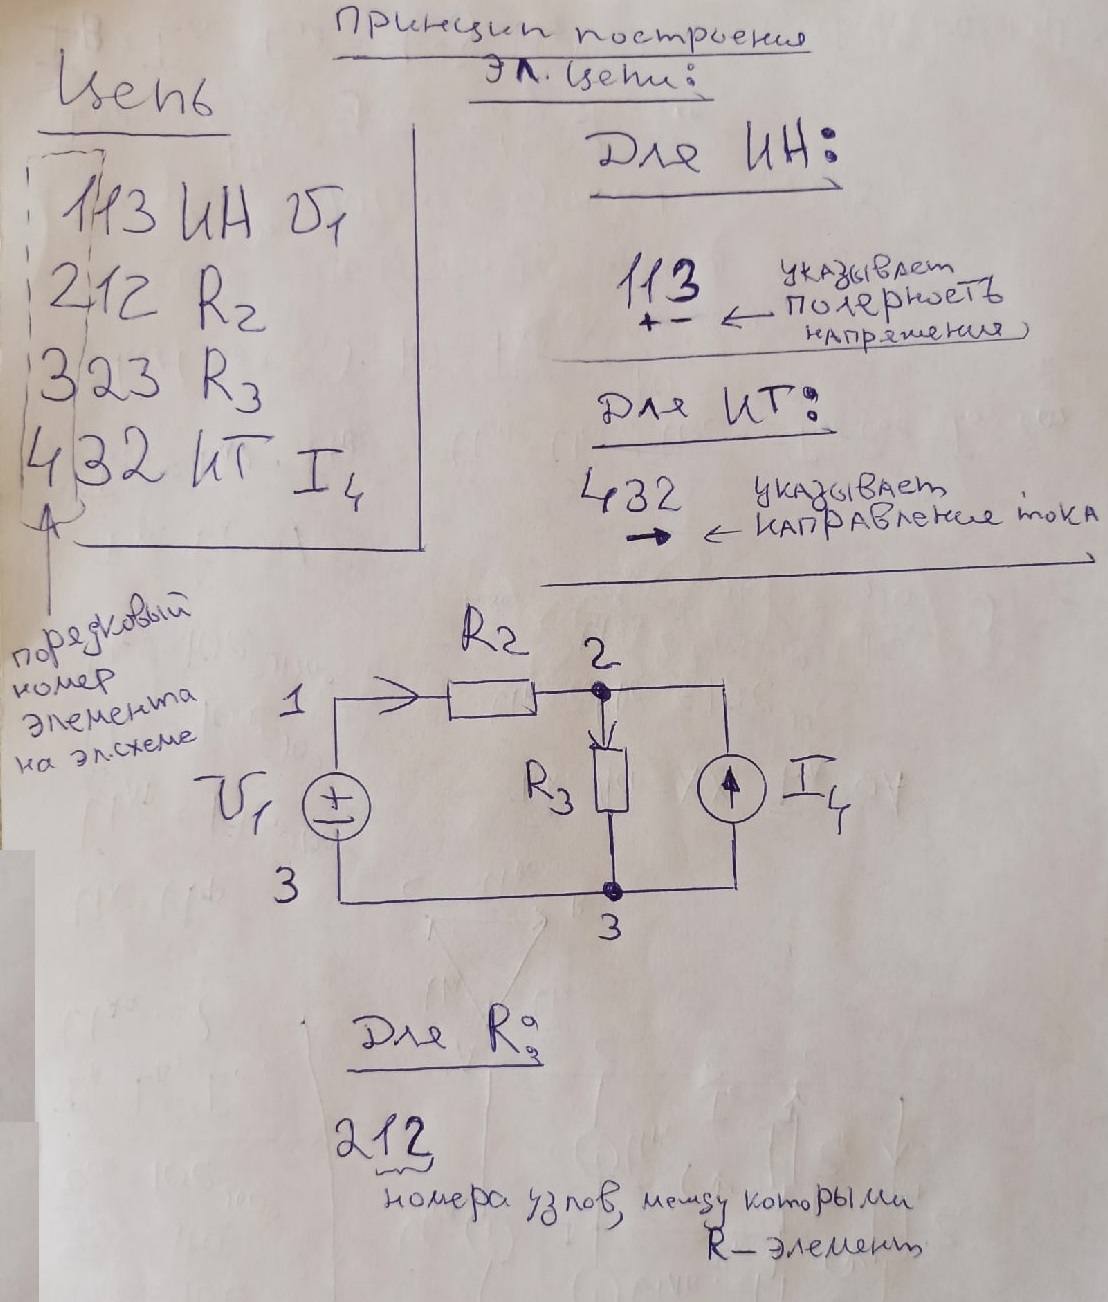 Принцип построения
эл. цепи:
Цепь
113 ИН U1
212 R2
323 R3
432 ИТ I4
порядковый
номер
элемента
на эл.схеме
Для ИН:
113
+ -
указывает
полерность
напряжения
Для ИТ:
432
указывает
направление тока
R2
2
1
U1
+
R3
I4
3
3
Для R:
212
номера узлов, между которыми
R - элемент